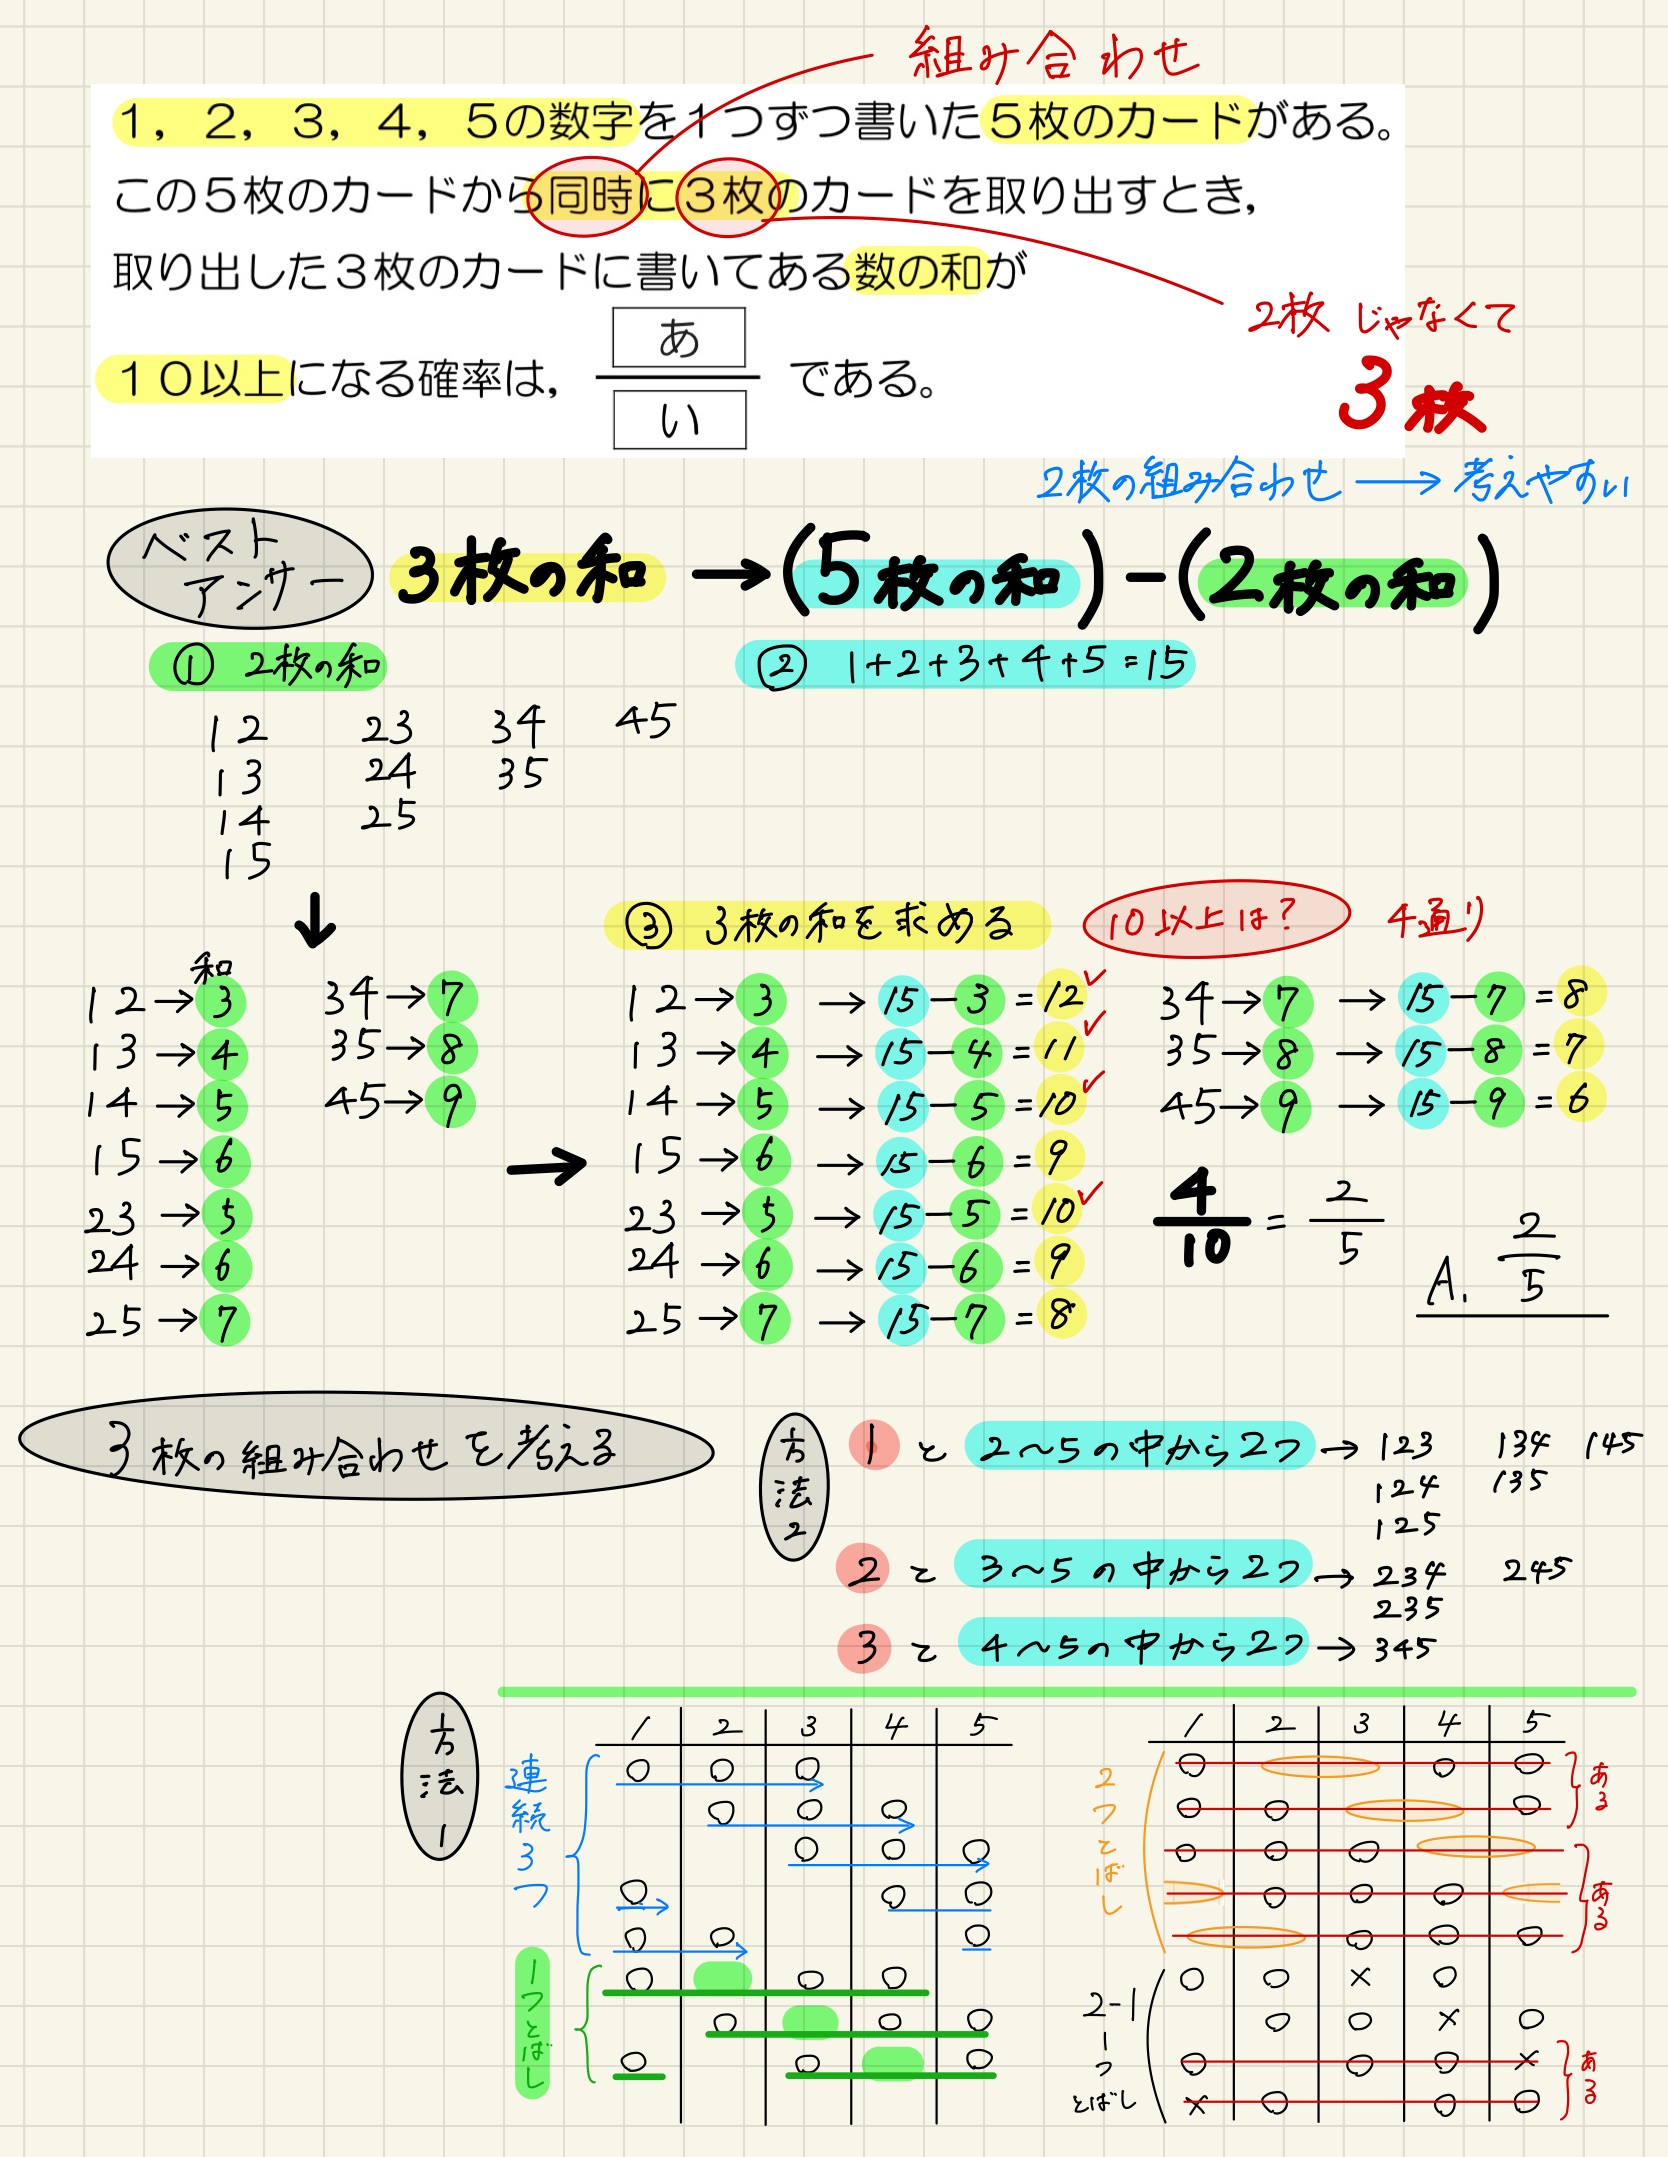 組み合わせ
1，2，3，4，5の数字を1つずつ書いた5枚のカードがある。
この5枚のカードから同時に3枚のカードを取り出すとき，
取り出した3枚のカードに書いてある数の和が
10以上になる確率は，
あ
い
である。
2枚 じゃなくて
3枚
2枚の組み合わせ → 考えやすい
ベスト
アンサー
3枚の和 → (5枚の和) − (2枚の和)
① 2枚の和
② 1+2+3+4+5=15
12 23 34 45
13 24 35
14 25
15
↓
③ 3枚の和を求める
10以上は?
4通り
和
12→3
13→4
14→5
15→6
23→5
24→6
25→7
34→7
35→8
45→9
→
12→3 → 15−3=12✓
13→4 → 15−4=11✓
14→5 → 15−5=10✓
15→6 → 15−6=9
23→5 → 15−5=10✓
24→6 → 15−6=9
25→7 → 15−7=8
34→7 → 15−7=8
35→8 → 15−8=7
45→9 → 15−9=6
4/10 = 2/5
A. 2/5
3枚の組み合わせを考える
方法2
1 と 2〜5の中から2つ → 123 134 145
124 135
125
2 と 3〜5の中から2つ → 234 245
235
3 と 4〜5の中から2つ → 345
方法1
1 2 3 4 5
連続3つ
○ ○ ○
○ ○ ○
○ ○ ○
○ ○ ○
○ ○ ○
1つとばし
○ ○ ○
○ ○ ○
○ ○ ○
1 2 3 4 5
2つとばし
○ ○ ○
○ ○ ○
ある
○ ○ ○
○ ○ ○
○ ○ ○
ある
2-1
1つとばし
○ ○ × ○
○ ○ × ○
○ ○ ○ ×
× ○ ○ ○
ある